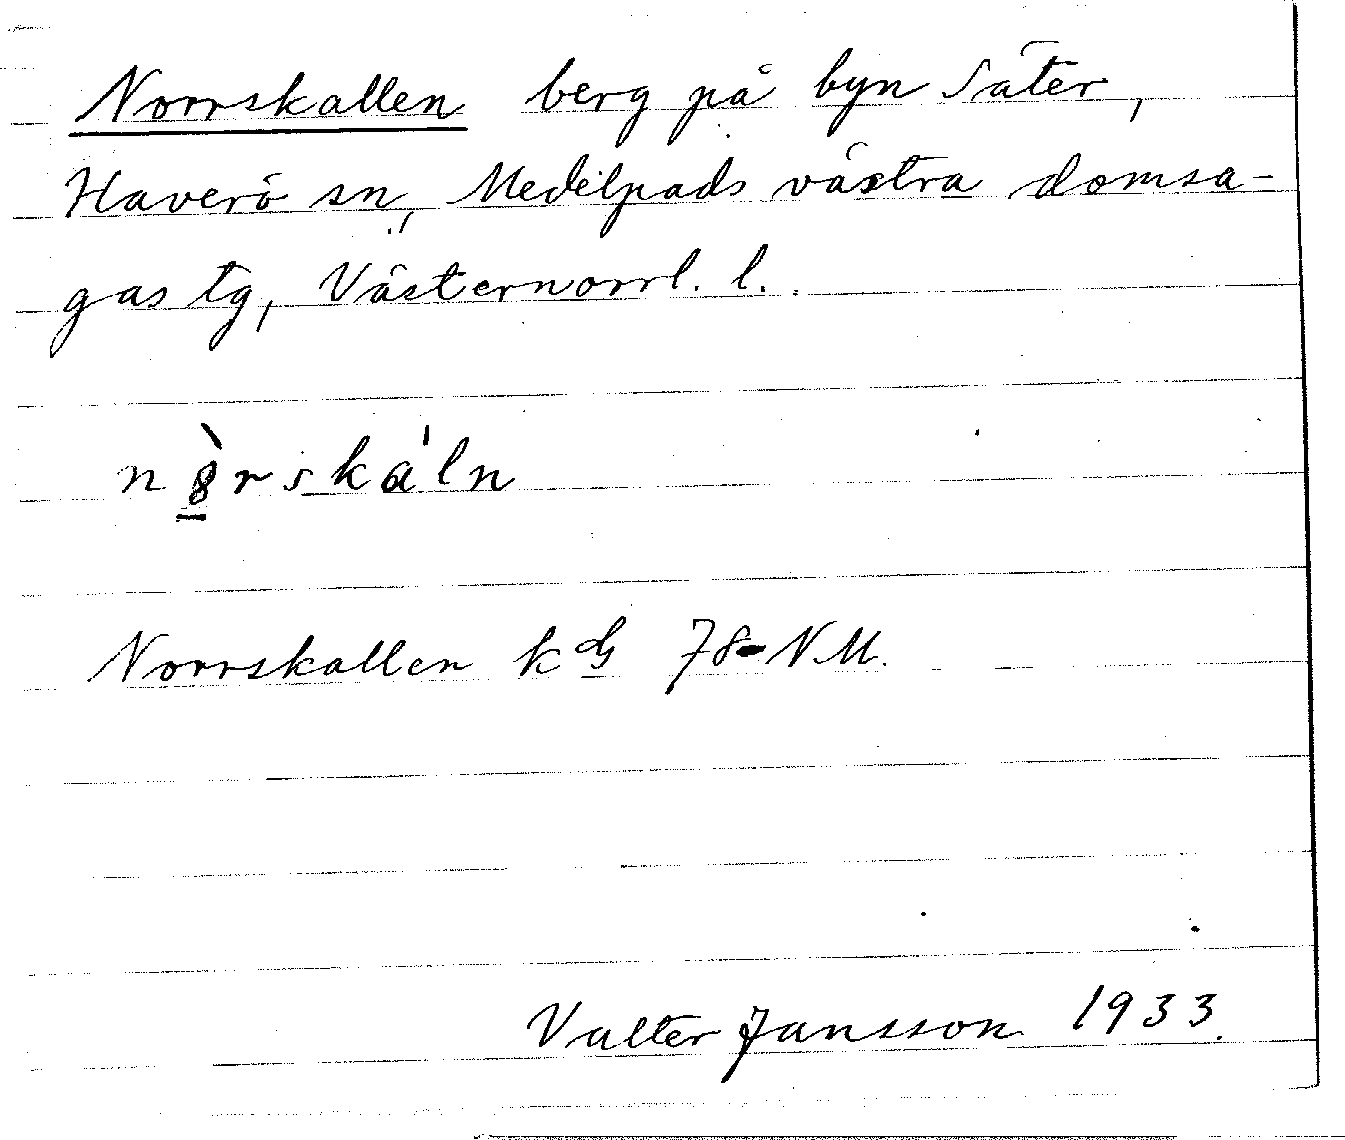 Norrskallen berg på byn Säter,
Haverö sn, Medelpads västra domsa-
gas tg, Västernorrl. l.
n8̀rska'ln
Norrskallen k 78-NM.
Valter Jansson 1933.